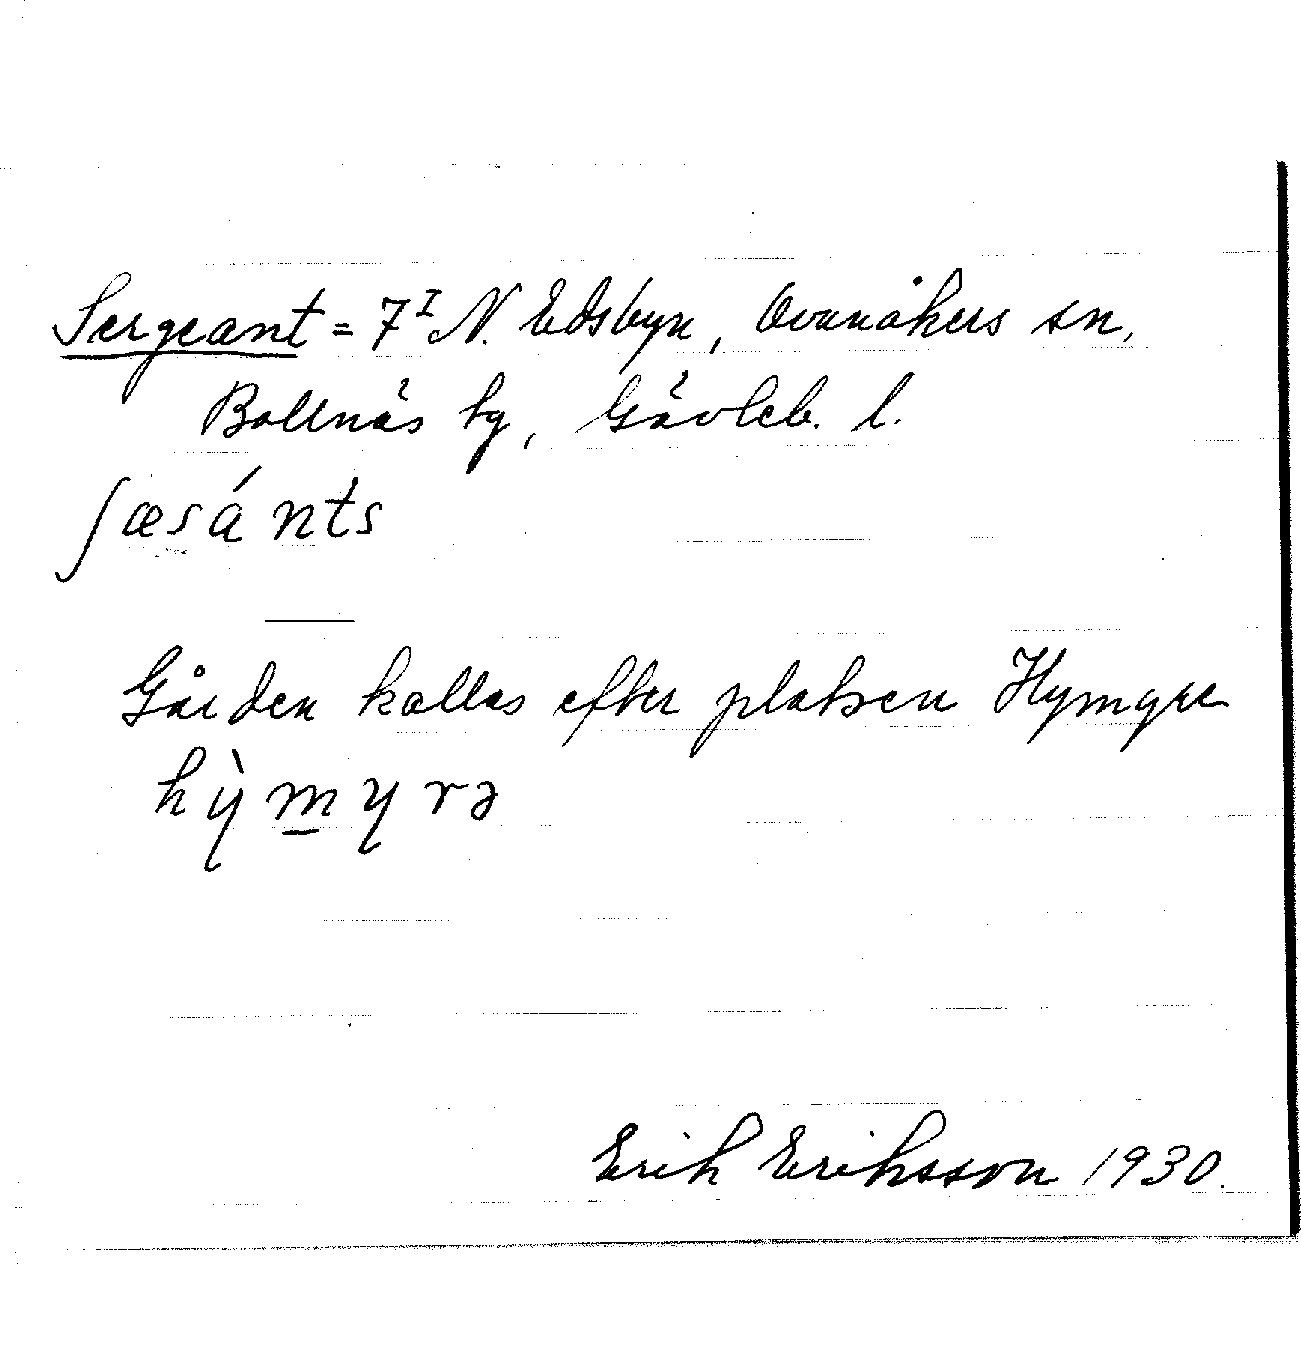 Sergeant = 7ᴵ N. Edsbyn, Ovanåkers sn,
Bollnäs tg, Gävleb. l.
ʃæsánts
Gården kallas efter platsen Hymyre
hỳm̲yrə
Erik Eriksson 1930.